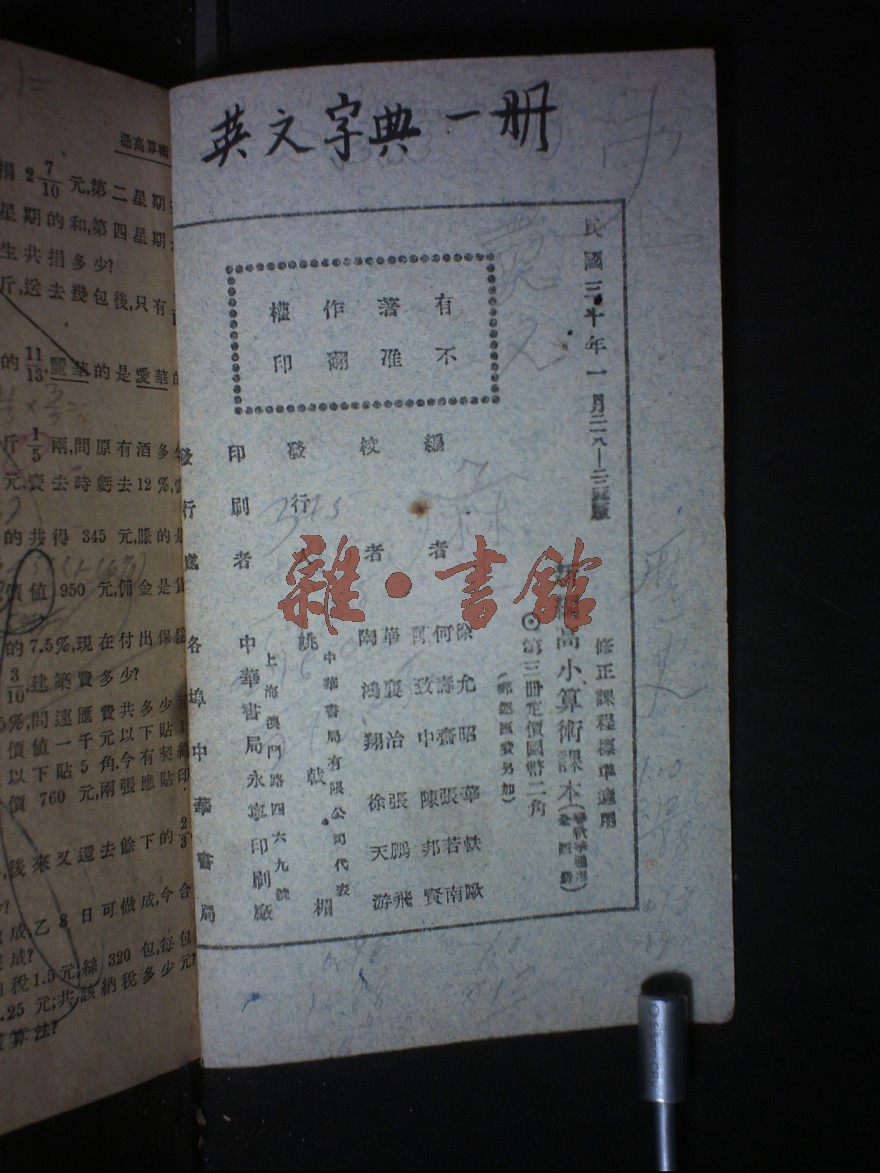 英文字典一册
民國三十年一月二八—二三版
修正課程標準適用
高小算術課本
◎第三册定價國幣二角
(郵運匯費另加)
有著作權
不准翻印
編者
徐允昭 華軼歐
何壽齋 張若南
陳致中 陳邦賢
校者
華襄治 張鵬飛
陶鴻翔 徐天游
發行人
中華書局有限公司代表
姚戟楣
印刷者
上海澳門路四六九號
中華書局永寧印刷廠
發行處
各埠中華書局
雜·書館
高算術
捐 2 7/10 元,第二星期
星期的和,第四星期
生共捐多少?
斤,送去幾包後,只有
的 11/13,麗華的是愛華的
斤 1/5 兩,問原有酒多
元,賣去時虧去 12%,
的共得 345 元,賺的是
價值 950 元,佣金是貨
的 7.5%,現在付出保
3/10,建築費多少?
5%,問連匯費共多少
價值一千元以下貼
以下貼 5 角.今有契
價 760 元,兩張應貼印
,後來又還去餘下的 2/3
成,乙 8 日可做成,今合
成?
稅 1.5元;絲 320 包,每包
.25 元;共該納稅多少元?
算法?